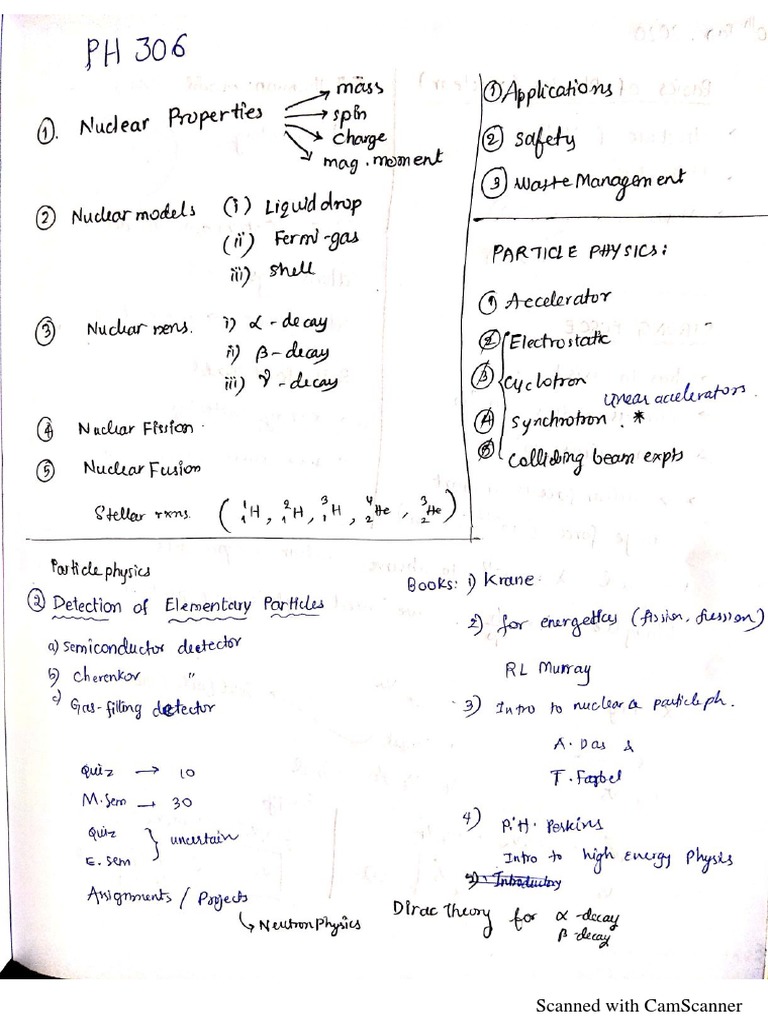 PH 306
①. Nuclear Properties
mass
spin
charge
mag. moment
② Nuclear models (i) Liquid drop
(ii) Fermi-gas
iii) shell
③ Nuclear rxns. i) α - decay
ii) β - decay
iii) γ - decay
④ Nuclear Fission
⑤ Nuclear Fusion
Stellar rxns. ( ¹₁H, ²₁H, ³₁H, ⁴₂He, ³₂He )
① Applications
② Safety
③ Waste Management
PARTICLE PHYSICS:
① Accelerator
② Electrostatic
③ Cyclotron
linear accelerators.
④ Synchrotron . *
⑤ Colliding beam expts
Particle physics
② Detection of Elementary Particles
a) Semiconductor detector
b) Cherenkov "
c) Gas-filling detector
Quiz → 10
M. Sem → 30
Quiz
E. Sem
} uncertain
Assignments / Projects
↳ Neutron Physics
Books: 1) Krane
2) for energetics (fission, fussion)
RL Murray
3) Intro to nuclear & particle ph.
A. Das &
T. Farbel
4) P.H. Perkins
Intro to high Energy Physis
5) Introductory
Dirac Theory for α -decay
β -decay
Scanned with CamScanner